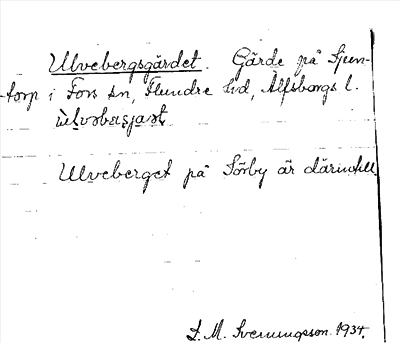 Ulvebergsgärdet. Gärde på Sjun-
-torp i Fors sn, Flundre hd, Älfsborgs l.
Ulveberget på Sörby är därintill
S. M. Svenungsson. 1934.